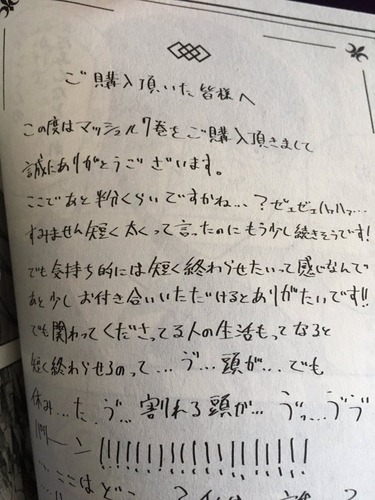 ご購入頂いた皆様へ
この度はマッシュル7巻をご購入頂きまして
誠にありがとうございます。
ここであと半分くらいですかね…?ゼェゼェハァハァ…
すみません短く太くって言ったのにもう少し続きそうです!
でも気持ち的には短く終わらせたいって感じなんで
あと少しお付き合いいただけるとありがたいです!!
でも関わってくださってる人の生活もってなると
短く終わらせるのって…ゔ…頭が…でも
休み…た…ゔ…割れる頭が…ゔっ…ゔゔ
!!!!!!!!!!!!!!!!
…ここはどこ…?